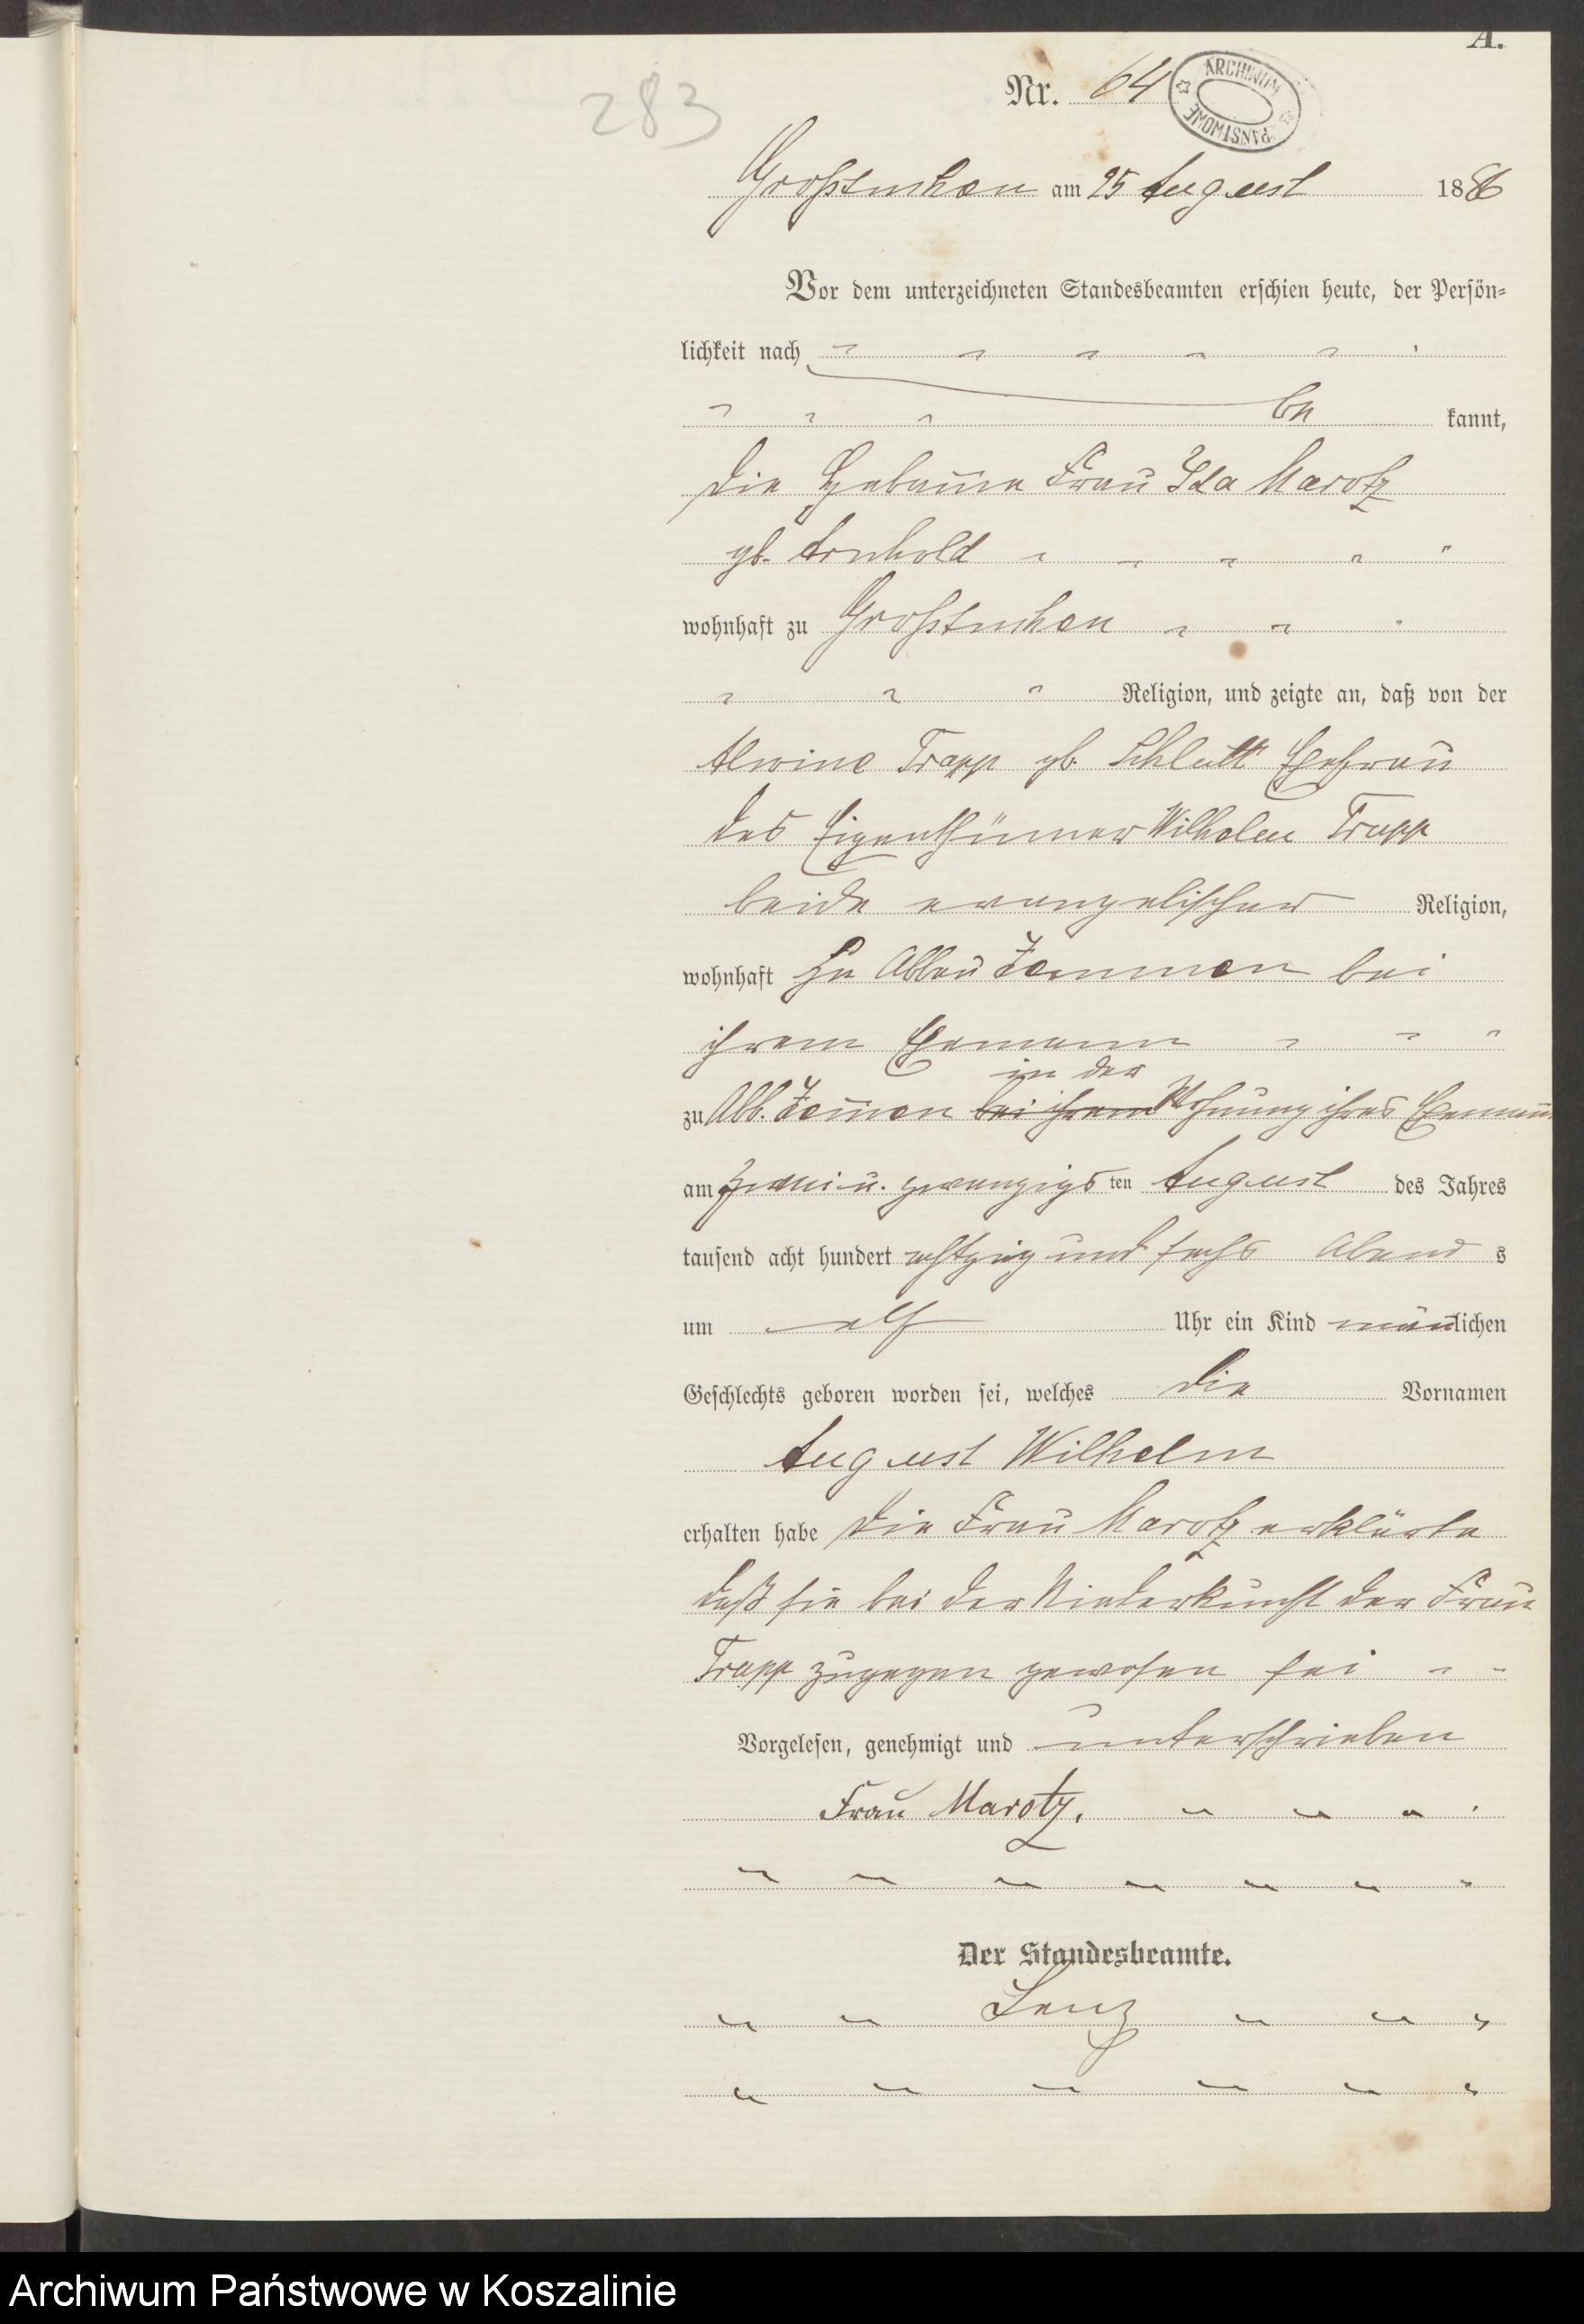 A.
283
Nr. 64
ARCHIWUM PAŃSTWOWE
Großtuchen am 25 August 1886
Vor dem unterzeichneten Standesbeamten erschien heute, der Persön-
lichkeit nach
be kannt,
die Hebamme Frau Ida Marotz
gb. Arnhold
wohnhaft zu Großtuchen
Religion, und zeigte an, daß von der
Alwine Trapp gb. Schlutt Ehefrau
des Eigenthümer Wilhelm Trapp
beide evangelischer Religion,
wohnhaft zu Abbau Zemmen bei
ihrem Ehemann
in der
zu Abb. Zem̄en bei ihrem Wohnung ihres Ehemann
am zwei u. zwanzigsten August des Jahres
tausend acht hundert achtzig und sechs Abends
um elf Uhr ein Kind män̄lichen
Geschlechts geboren worden sei, welches die Vornamen
August Wilhelm
erhalten habe Die Frau Marotz erklärte
daß sie bei der Niederkunft der Frau
Trapp zugegen gewesen sei
Vorgelesen, genehmigt und unterschrieben
Frau Marotz.
Der Standesbeamte.
Lenz
Archiwum Państwowe w Koszalinie